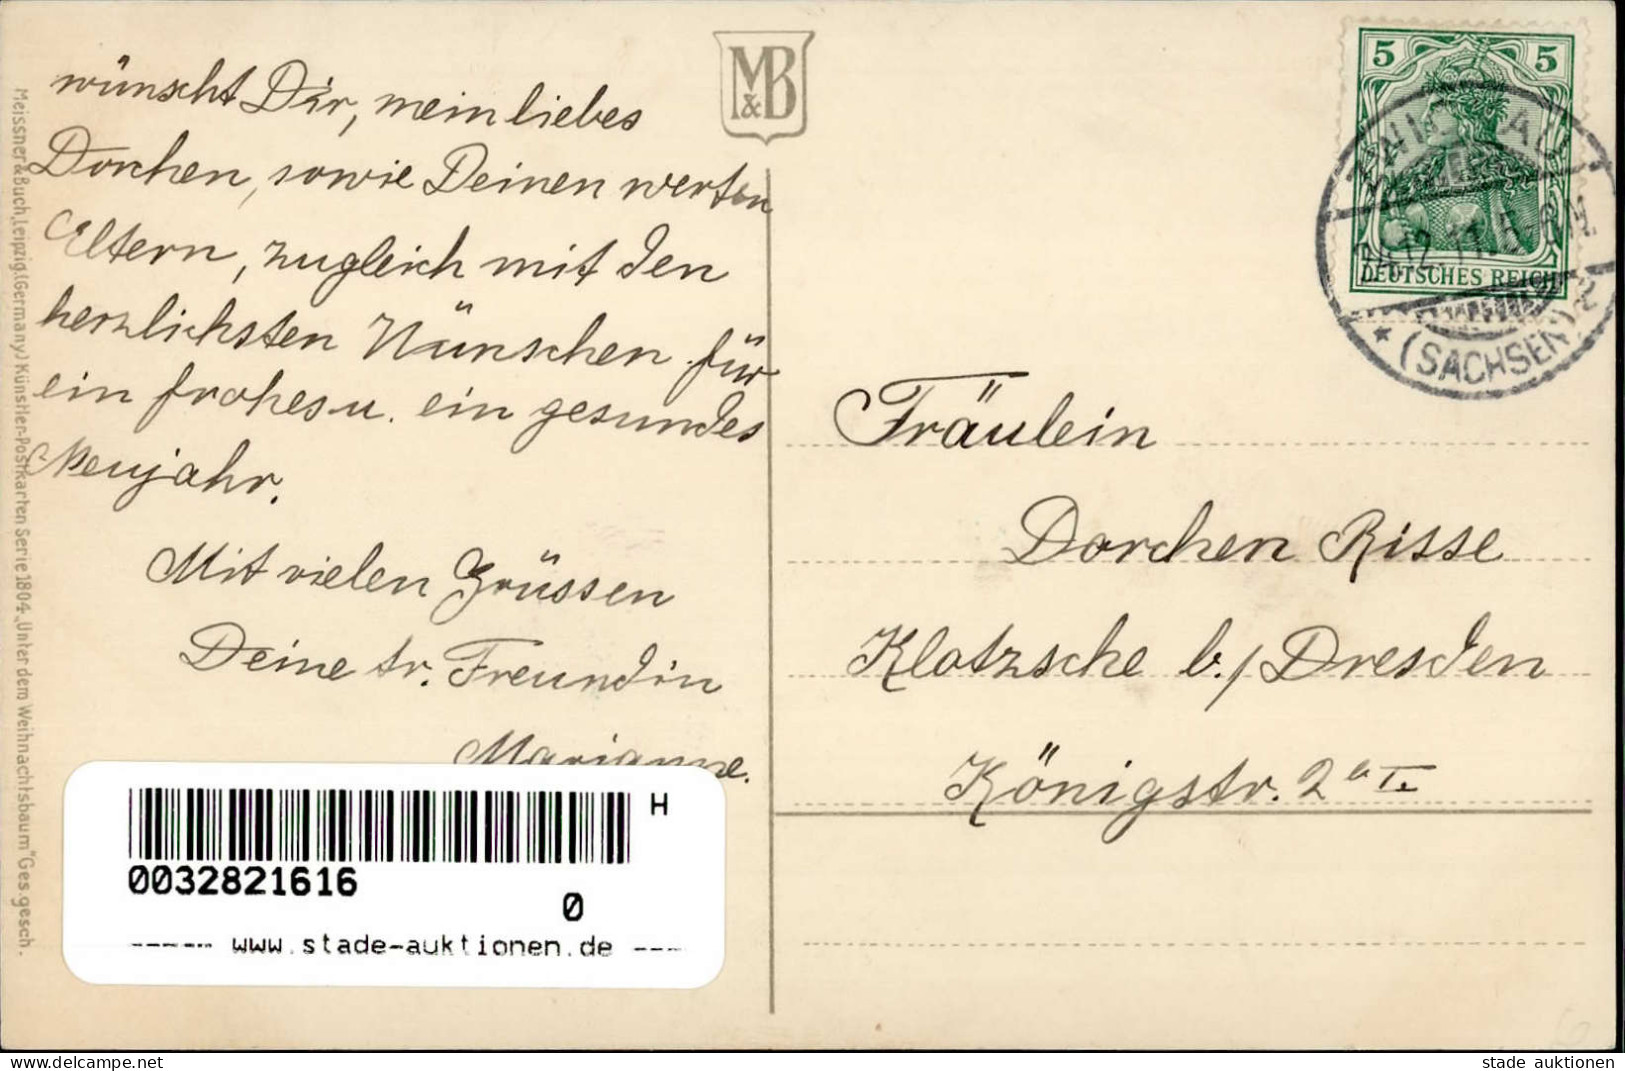 wünscht Dir, mein liebes
Dorchen, sowie Deinen werten
Eltern, zugleich mit den
herzlichsten Wünschen für
ein frohes u. ein gesundes
Neujahr.
Mit vielen Grüssen
Deine tr. Freundin
Marianne.
M&B
5 5
DEUTSCHES REICH
12.11.5-6N.
* (SACHSEN) 2
Fräulein
Dorchen Risse
Klotzsche b./Dresden
Königstr. 2a I.
Meissner & Buch, Leipzig. (Germany) Künstler-Postkarten Serie 1804 „Unter dem Weihnachtsbaum" Ges. gesch.
H
0032821616
0
------ www.stade-auktionen.de ----
stade-auktionen.de
stade auktionen